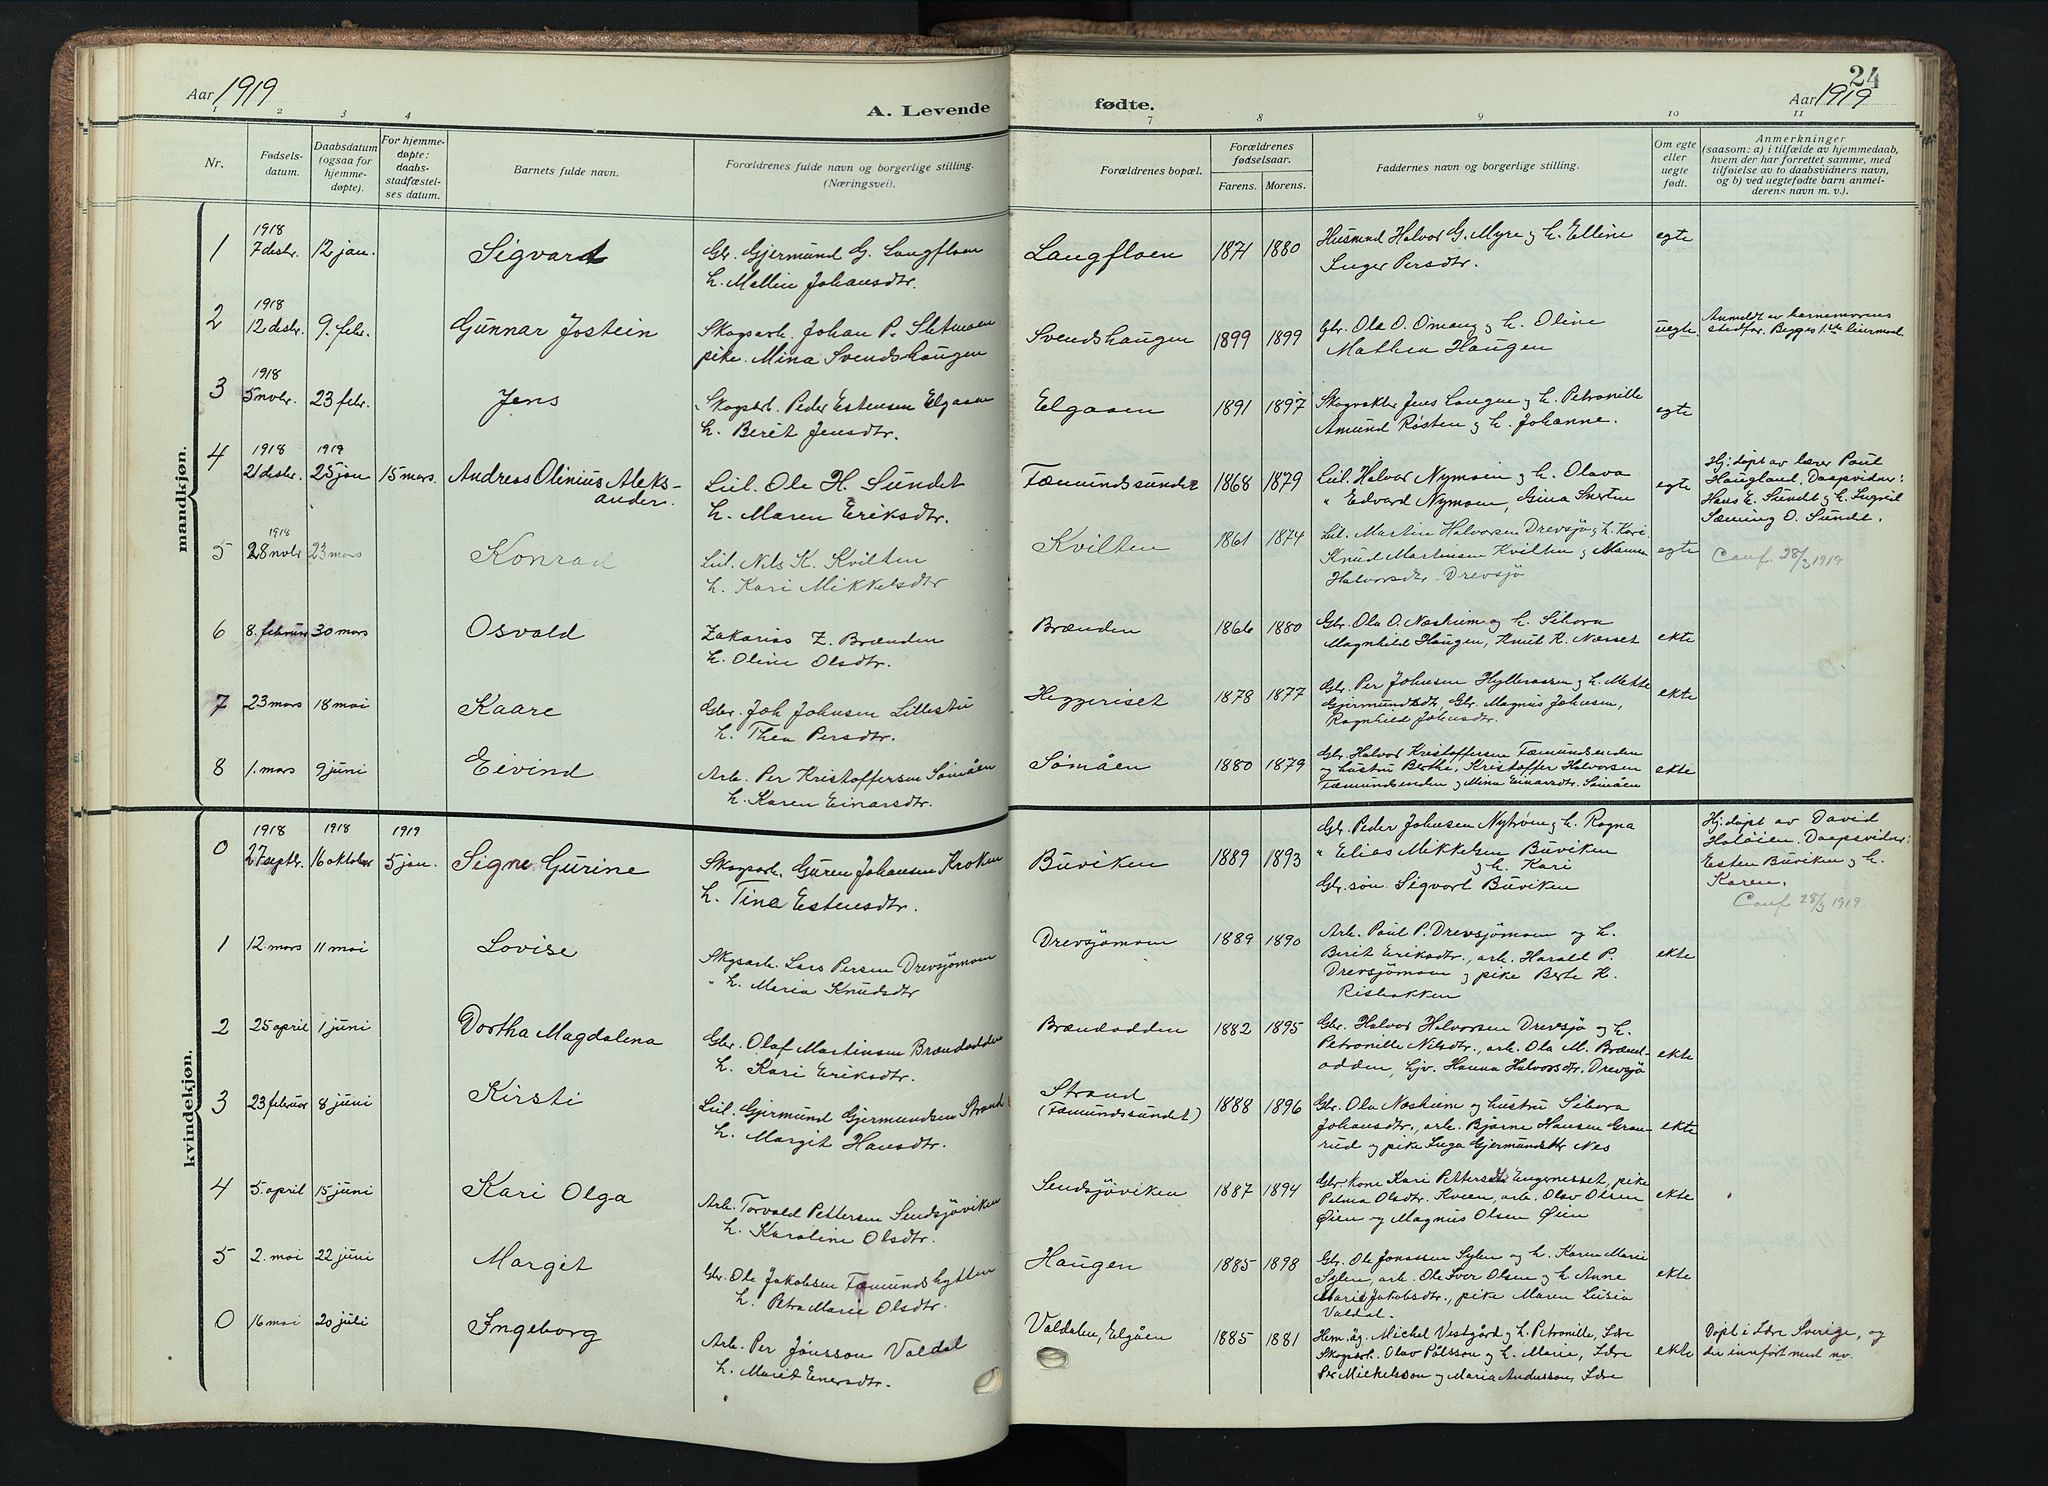 Aar 1919
A. Levende
1 2 3 4
Nr.
Fødsels-datum.
Daabsdatum (ogsaa for hjemme-døpte).
For hjemme-døpte: daabs-stadfæstel-ses datum.
Barnets fulde navn.
Forældrenes fulde navn og borgerlige stilling. (Næringsvei).
mandkjøn.
1 1918 7 desbr. 12 jan. Sigvard Gbr. Gjermund G. Langfloen
h. Mellin Johansdtr.
2 1918 12 desbr. 9. febr. Gunnar Jostein Skogsarb. Johan P. Sletmoen
pike. Mina Svendshaugen
3 1918 5 novbr. 23 febr. Jens Skogsarb. Peder Estensen Elgaaen
h. Berit Jensdtr.
4 1918 21 desbr. 1919 25 jan 15 mars. Andreas Olinius Aleks-
ander. Leil. Ole H. Sundet
h. Maren Eriksdtr.
5 1918 28 novbr 23 mars Konrad Leil. Nils K. Kvilten
h. Kari Mikkelsdtr
6 8. februar 30 mars Osvald Zakarias Z. Brænden
h. Oline Olsdtr.
7 23 mars 18 mai Kaare Gbr. Joh Johnsen Lillestu
h. Thea Persdtr.
8 1. mars 9 juni Eivind Arb. Per Kristoffersen Sømåen
h. Karen Einarsdtr.
kvindekjøn.
0 1918 27 septbr. 1918 16 oktober 1919 5 jan. Signe Gurine Skogsarb. Guren Johansen Kroken
h. Tina Estensdtr.
1 12 mars 11 mai Lovise Skogsarb. Lars Persen Drevsjømoen
" h. Maria Knudsdtr
2 25 april 1 juni Dortha Magdalena Gbr. Olaf Martinsen Brændodden
h. Kari Eriksdtr.
3 23 februar 8 juni Kirsti Leil. Gjermund Gjermundsen Strand
h. Margit Hansdtr.
4 5. april 15 juni Kari Olga Arb. Torvald Pettersen Sendsjøviken
h. Karoline Olsdtr.
5 2. mai 22 juni Margit Gbr. Ole Jakobsen Fæmundshytten
h. Petra Marie Olsdtr.
0 16 mai 20 juli Ingeborg Arb. Per Jonsson Valdal
h. Marit Enersdtr.
24
fødte.
Aar 1919
7 8 9 10 11
Forældrenes bopæl.
Forældrenes fødselsaar.
Farens. Morens.
Faddernes navn og borgerlige stilling.
Om egte eller uegte født.
Anmerkninger
(saasom: a) i tilfælde av hjemmedaab,
hvem der har forrettet samme, med
tilføielse av to daabsvidners navn,
og b) ved uegtefødte barn anmel-
derens navn m. v.).
Langfloen 1871 1880 Husmand Halvor G. Myre og h. Elline
Inger Persdtr. egte
Svendshaugen 1899 1899 Gbr. Ola O. Omang og h. Oline
Mathea Haugen uegte Anmeldt av barnemorens
stedfar. Begges 1.ste leiermaal.
Elgaaen 1891 1897 Skogvokter Jens Langen og h. Petronille
Amund Røsten og h. Johanne. egte
Fæmundssundet 1868 1879 Leil. Halvor Nymoen og h. Olava
" Edvard Nymoen, Gina egte Hj. døpt av lærer Paul
Haugland. Daapsvidner:
Hans E. Sundet og h. Ingeid
Sæming O. Sundet.
Kvilten 1861 1874 Leil. Martin Halvorsen Drevsjø og h. Kari
Knud Martinsen Kvilten og
Halvorsdtr. Drevsjø egte Conf. 28/3 1919
Brænden 1866 1880 Gbr. Ola O. Næsheim og h. Sibora
Magnhild Haugen, Knut R. Næsset ekte
Heggeriset 1878 1877 Gbr. Per Johnsen Hylleraasen og h. Mette
Gjermundsdt, Gbr. Magnus Johnsen,
Ragnhild Johnsdtr. ekte
Sømåen 1880 1879 Gbr. Halvor Kristoffersen Fæmundsenden
og hustru Berthe, Kristoffer Halvorsen
Fæmundsenden og Mina Einarsdtr. Sømåen ekte
Buviken 1889 1893 Gbr. Peder Johnsen Nytrøen og h. Ragna
" Elias Mikkelsen Buviken
og h. Kari
Gbr. søn. Sigvart Buviken Hj. døpt av David
Haløien. Daapsvidner:
Esten Buviken og h.
Karen.
Conf. 28/3 1919.
Drevsjømoen 1889 1890 Arb. Paul P. Drevsjømoen og h.
Berit Eriksdtr., arb. Harald P.
Drevsjømoen og pike Berte K.
Risbakken ekte
Brændodden 1882 1895 Gbr. Halvor Halvorsen Drevsjø og h.
Petronille Nilsdtr., arb. Ola M. Brænd-
odden, hjv. Hanna Halvorsdtr. Drevsjø ekte
Strand
(Fæmundssundet) 1888 1896 Gbr. Ola Næsheim og hustru Sibora
Johansdtr., arb. Bjarne Hansen Gran-
rud og pike Inga Gjermundsdtr Nes ekte
Sendsjøviken 1887 1894 Gbr. kone Kari Pettersdtr Engernesset, pike
Palma Olsdtr. Kveen, arb. Olav Olsen
Øien og Magnus Olsen Øien ekte
Haugen 1885 1898 Gbr. Ole Jonassen Sylen og h. Karen Marie
Sylen, arb. Ole Iver Olsen og h Anne
Marie Jakobsdtr., pike Maren Luisia
Valdal. ekte
Valdalen, Elgåen 1885 1881 Hem. äg. Michel Vestgård og h. Petronille, Idre
Skogsarb. Olav Pålsson og h. Maria, Idre
Per Michelsson og Maria Andersson, Idre ekte Døpt i Idre Sverige, og
der innført med no.